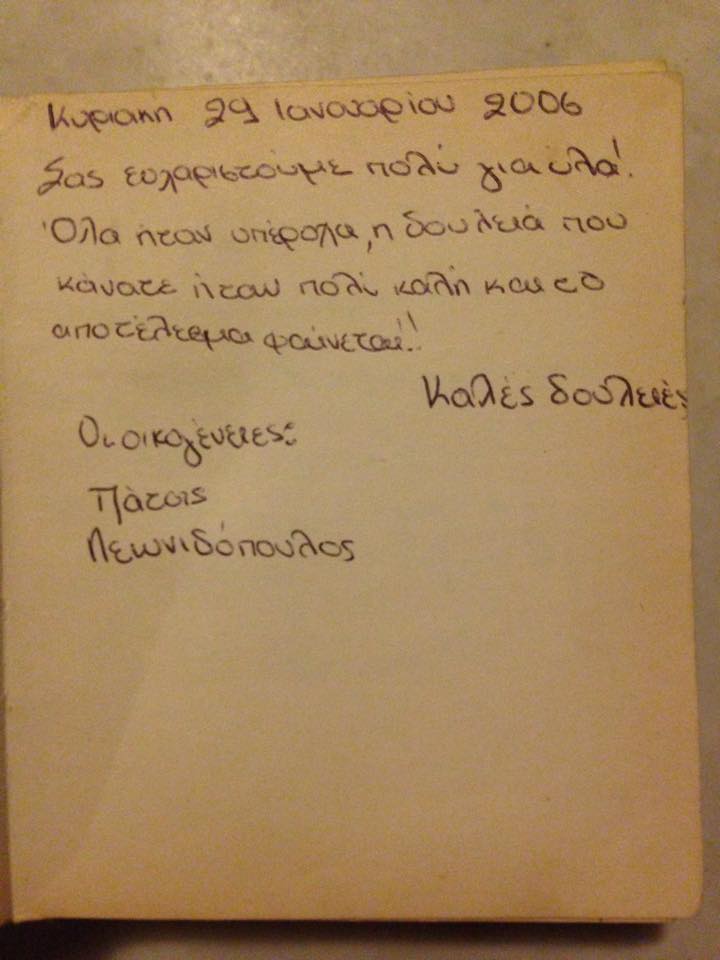 Κυριακη 29 Ιανουαρίου 2006
Σας ευχαριστούμε πολύ για όλα!
Όλα ήταν υπέροχα, η δουλειά που
κάνατε ήταν πολύ καλή και το
αποτέλεσμα φαίνεται!!
Καλές δουλειές
Οι οικογένειες:
Πάτσις
Λεωνιδόπουλος